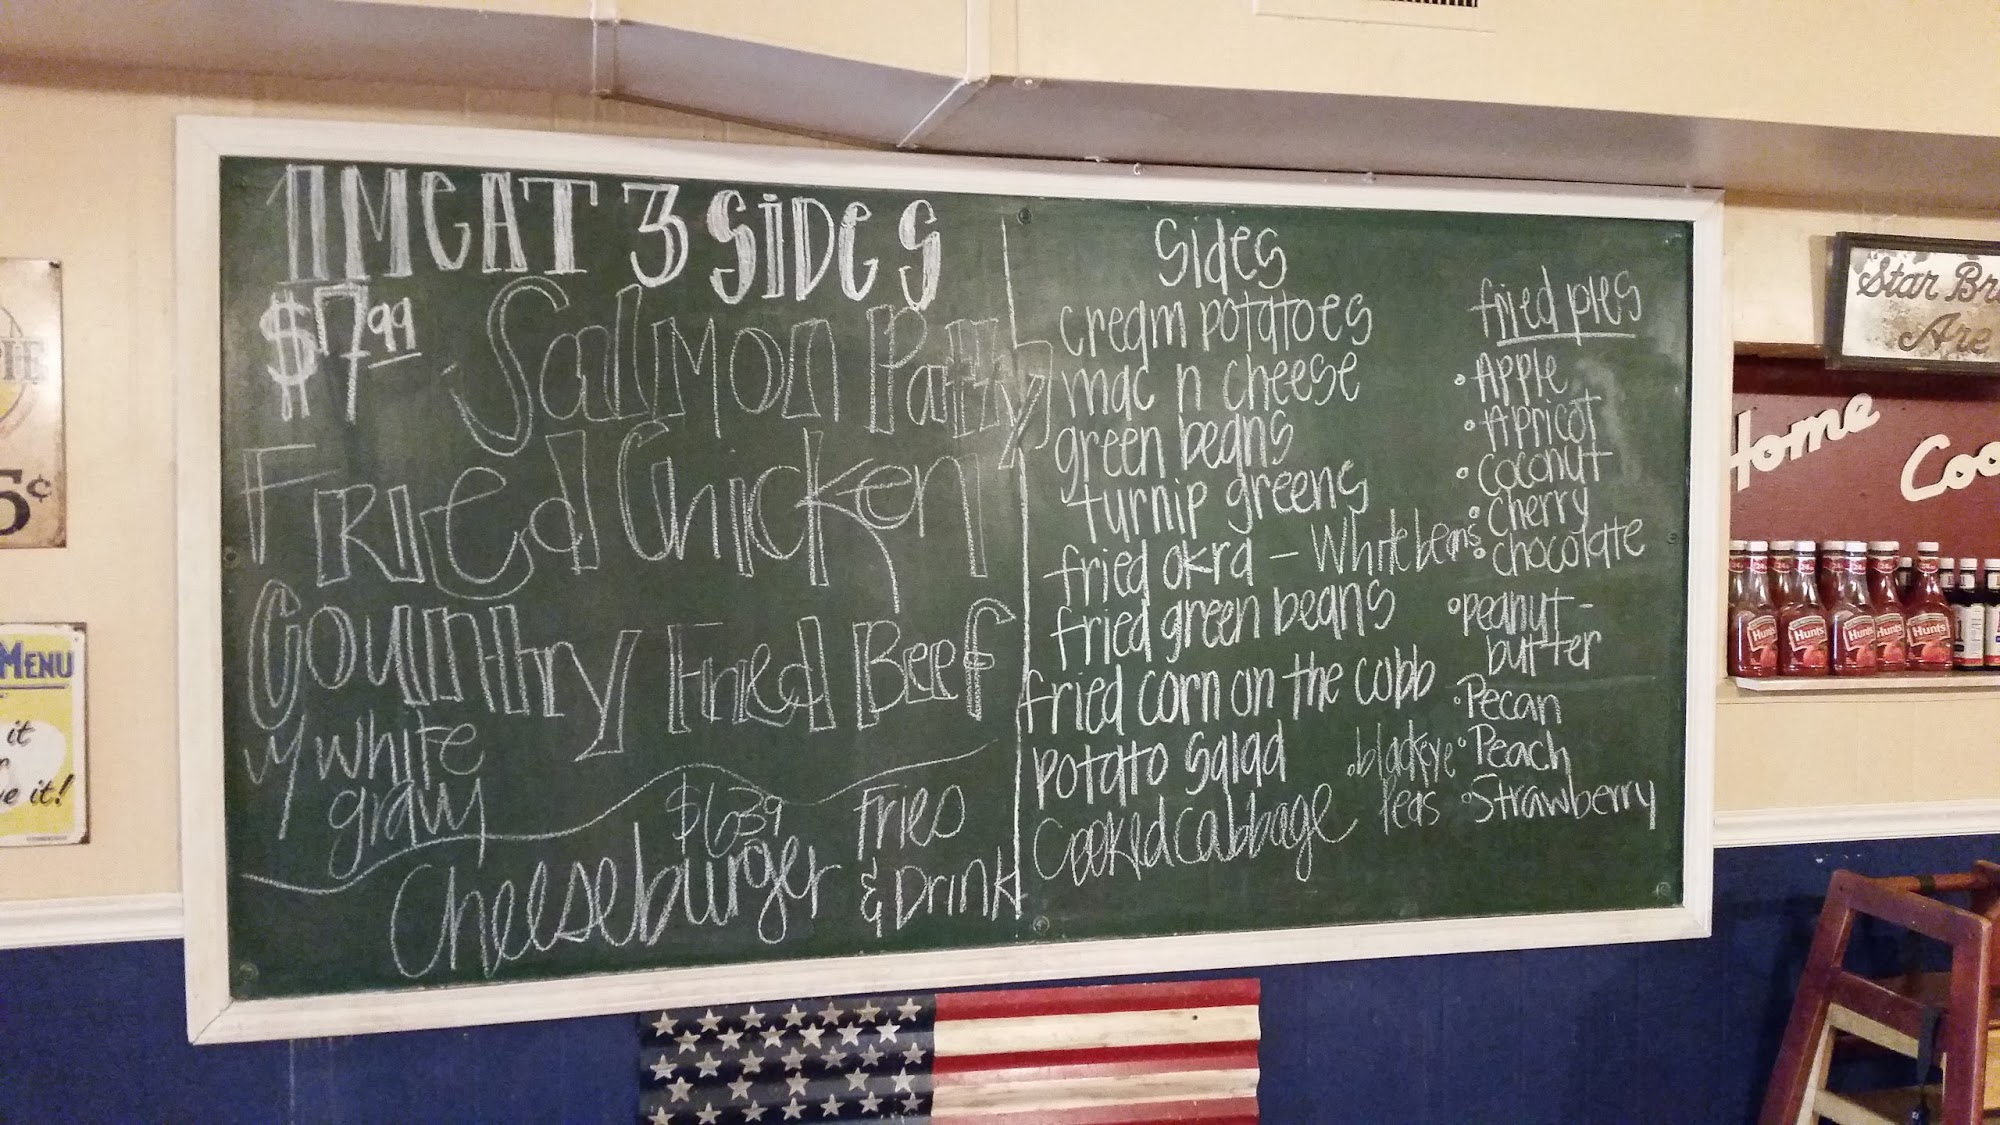 1 MEAT 3 SIDES
$7.99
Salmon Patty
Fried Chicken
Country Fried Beef
w/ white
gravy
$6.39
Cheeseburger
Fries
& Drink
Sides
cream potatoes
mac n cheese
green beans
turnip greens
fried okra - White beans
fried green beans
fried corn on the cobb
potato salad
Cooked cabbage
blackeye
Peas
fried pies
Apple
Apricot
Coconut
Cherry
chocolate
peanut-
butter
Pecan
Peach
Strawberry
Star
Are
Home
Hunt's
Hunt's
Hunt's
Hunt's
Hunt's
5¢
MENU
it
e it!